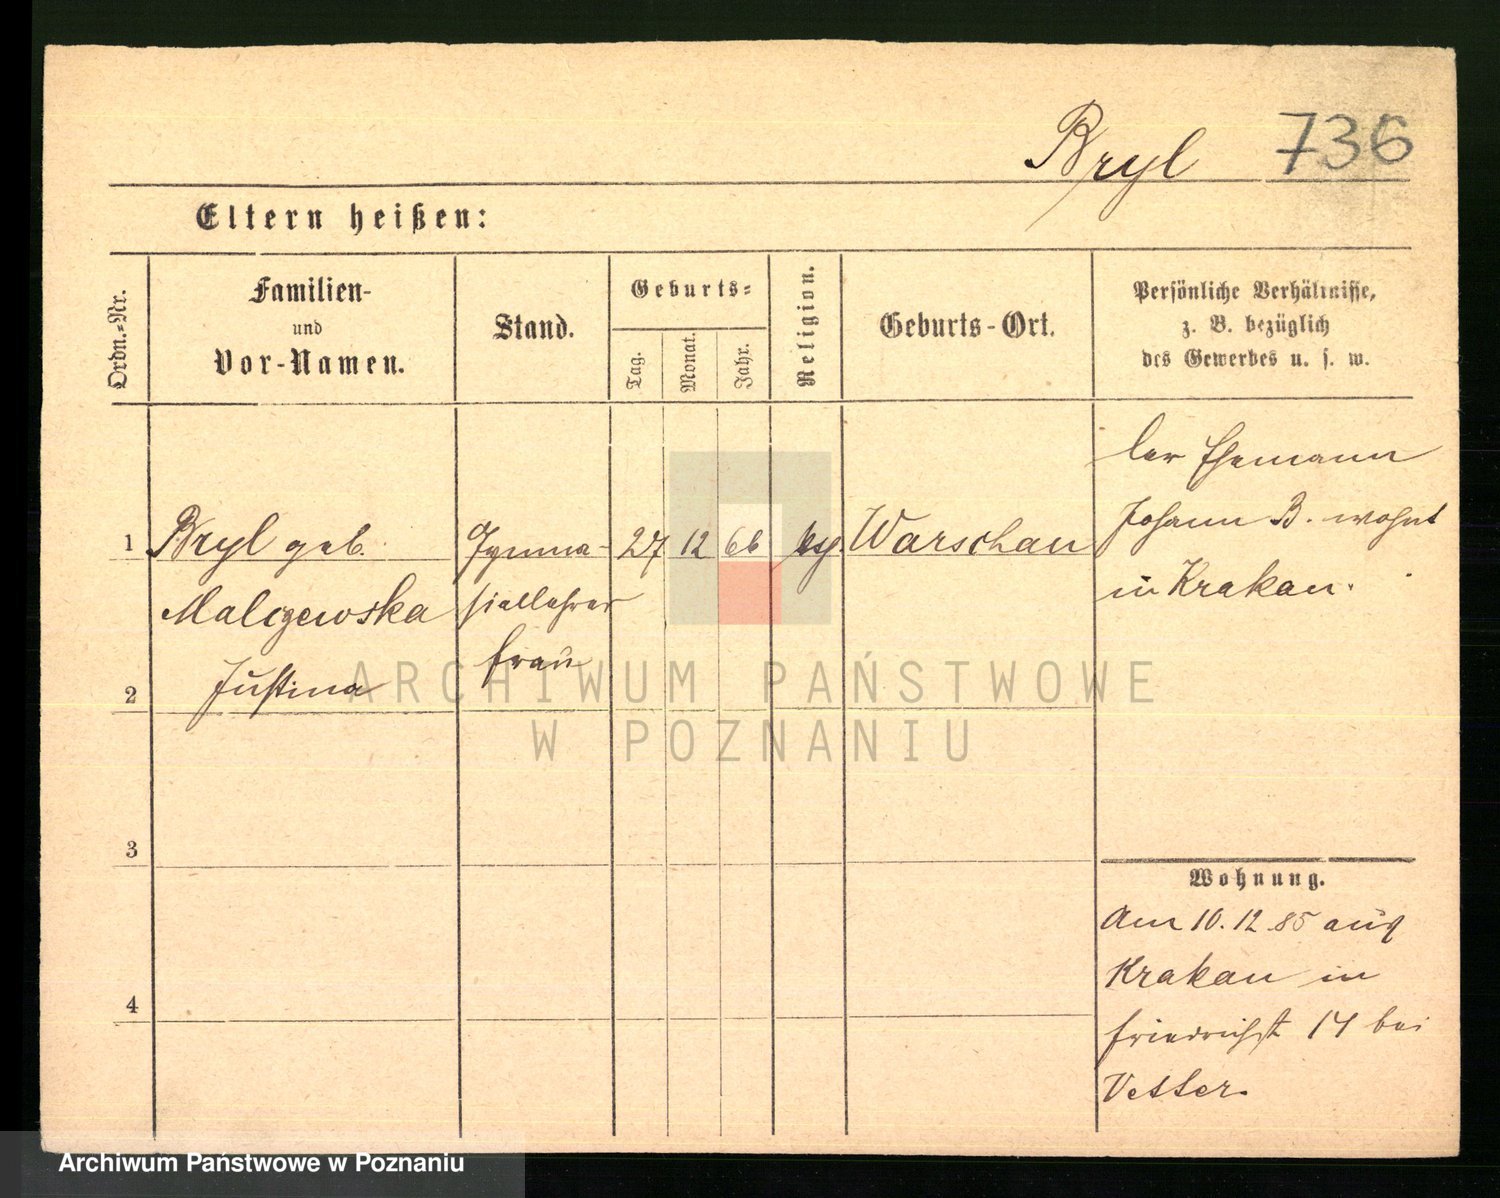 Bryl 736
Eltern heißen:
Ordn.=Nr.
Familien-
und
Vor-Namen.
Stand.
Geburts=
Tag.
Monat.
Jahr.
Religion.
Geburts-Ort.
Persönliche Verhältnisse,
z. B. bezüglich
des Gewerbes u. s. w.
1 Bryl geb. Gymna- 27 12 66 Warschau
Malczewska siallehrer
Justina frau
der Ehemann
Johann B. wohnt
in Krakau.
2
3
4
Wohnung.
Am 10.12.85 aus
Krakau in
Friedrichst 14 bei
Vetter.
ARCHIWUM PAŃSTWOWE
W POZNANIU
Archiwum Państwowe w Poznaniu